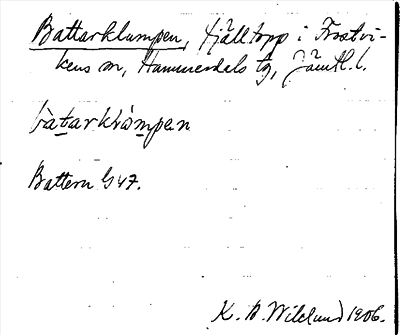 Battarklumpen, fjälltopp i Frostvi-
kens sn, Hammerdals tg, Jämtl. l.
Battern G 47.
K. B. Wiklund 1906.